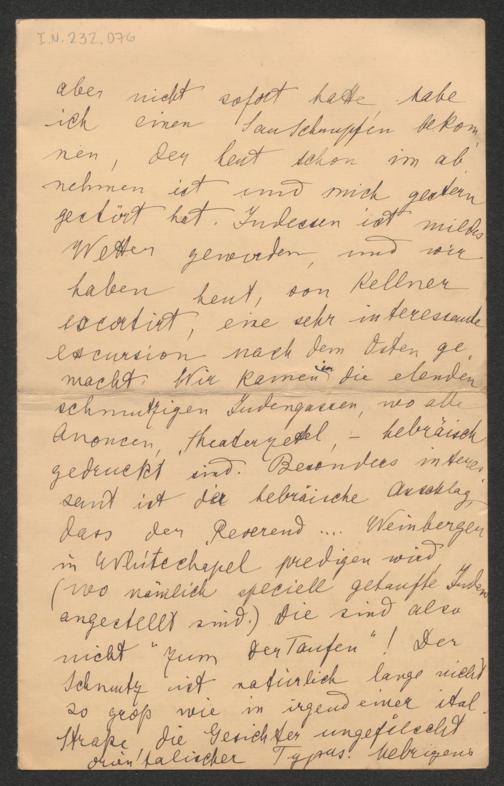 I.N. 232.076
aber nicht sofort hatte, habe
ich einen Sauschnupfen bekom,
men, der heut schon im ab
nehmen ist und mich gestern
gestört hat. Indessen ist mildes
Wetter geworden, und wir
haben heut, von Kellner
escortirt, eine sehr interessante
excursion nach dem Osten ge,
macht. Wir kamen in die elenden
schmutzigen Judengassen, wo alle
Anoncen, Theaterzettel, – hebräisch
gedruckt sind. Besonders interes
sant ist der hebräische Anschlag,
dass der Reverend .... Weinberger
in Whitechapel predigen wird
(wo nämlich speciell getaufte Juden
angestellt sind.) Die sind also
nicht "zum der Taufen"! Der
Schmutz ist natürlich lange nicht
so groß wie in irgend einer ital.
Straße, die Gesichter ungefälscht
orientalischer Typus. Uebrigens